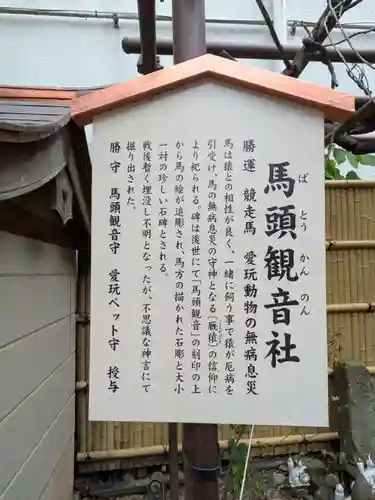 馬頭観音社
ばとうかんのん
勝運 競走馬 愛玩動物の無病息災
馬は猿との相性が良く、一緒に飼う事で猿が厄病を
引受け、馬の無病息災の守神となる(厩猿)の信仰に
より祀られる。碑は後世にて「馬頭観音」の刻印の上
から馬の絵が追彫され、馬方の描かれた石彫と大小
一対の珍しい石碑とされる。
戦後暫く埋没し不明となったが、不思議な神言にて
掘り出された。
勝守 馬頭観音守 愛玩ペット守 授与